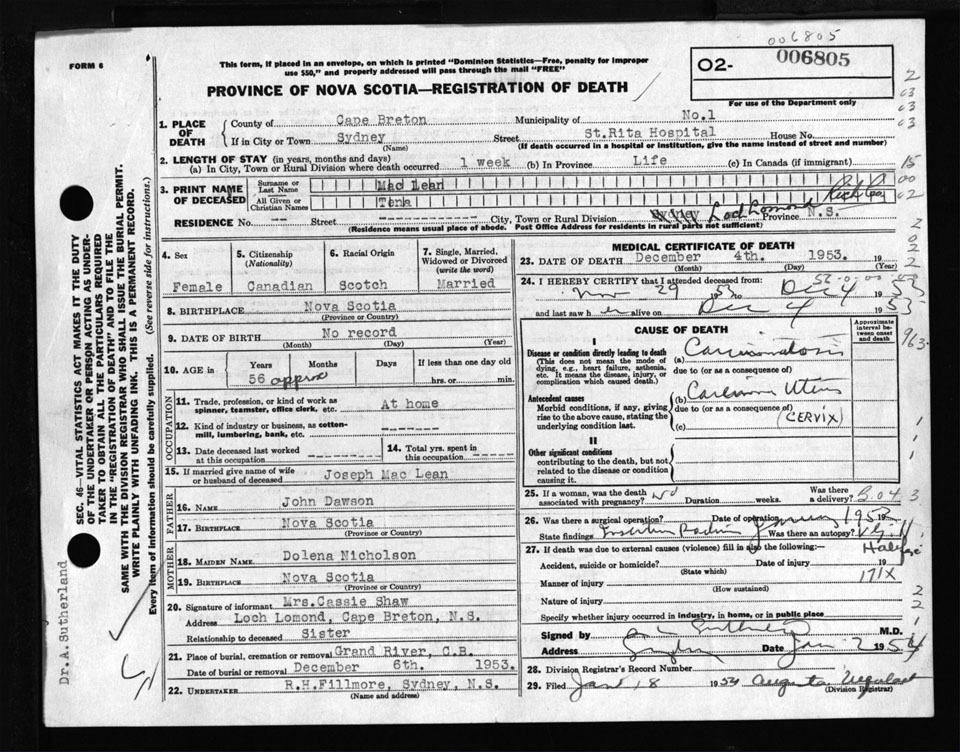 006805
FORM 6
This form, if placed in an envelope, on which is printed "Dominion Statistics—Free, penalty for improper
use $50," and properly addressed will pass through the mail "FREE"
O2- 006805
For use of the Department only
PROVINCE OF NOVA SCOTIA—REGISTRATION OF DEATH
1. PLACE OF DEATH County of Cape Breton Municipality of No.1
If in City or Town Sydney Street St.Rita Hospital House No.
(Name) (If death occurred in a hospital or institution, give the name instead of street and number)
2. LENGTH OF STAY (in years, months and days)
(a) In City, Town or Rural Division where death occurred 1 week (b) In Province Life (c) In Canada (if immigrant)
3. PRINT NAME OF DECEASED Surname or Last Name Mac Lean
All Given or Christian Names Tena
RESIDENCE No. -- Street -------------- City, Town or Rural Division Sydney Loch Lomond Province N.S.
(Residence means usual place of abode. Post Office Address for residents in rural parts not sufficient)
4. Sex Female
5. Citizenship (Nationality) Canadian
6. Racial Origin Scotch
7. Single, Married, Widowed or Divorced (write the word) Married
8. BIRTHPLACE Nova Scotia
(Province or Country)
9. DATE OF BIRTH No record
(Month) (Day) (Year)
10. AGE in Years Months Days If less than one day old
56 approx hrs. or min.
OCCUPATION
11. Trade, profession, or kind of work as
spinner, teamster, office clerk, etc. At home
12. Kind of industry or business, as cotton-
mill, lumbering, bank, etc. ------
13. Date deceased last worked
at this occupation -----
14. Total yrs. spent in
this occupation -----
15. If married give name of wife
or husband of deceased Joseph Mac Lean
FATHER
16. NAME John Dawson
17. BIRTHPLACE Nova Scotia
(Province or Country)
MOTHER
18. MAIDEN NAME Dolena Nicholson
19. BIRTHPLACE Nova Scotia
(Province or Country)
20. Signature of informant Mrs.Cassie Shaw
Address Loch Lomond, Cape Breton, N.S.
Relationship to deceased Sister
21. Place of burial, cremation or removal Grand River, C.B.
Date of burial or removal December 6th. 1953.
22. UNDERTAKER R.H.Fillmore, Sydney, N.S.
(Name and address)
MEDICAL CERTIFICATE OF DEATH
23. DATE OF DEATH December 4th. 1953. 19
(Month) (Day) (Year)
24. I HEREBY CERTIFY that I attended deceased from:
Nov 29 1953 to Dec 4 1953
and last saw her alive on Dec 4 1953
CAUSE OF DEATH
Approximate interval between onset and death
I
Disease or condition directly leading to death
(This does not mean the mode of
dying, e.g., heart failure, asthenia,
etc. It means the disease, injury, or
complication which caused death.)
(a) Carcinomatosis
due to (or as a consequence of)
Antecedent causes
Morbid conditions, if any, giving
rise to the above cause, stating the
underlying condition last.
(b) Carcinoma Uterus
due to (or as a consequence of)
(CERVIX)
(c)
II
Other significant conditions
contributing to the death, but not
related to the disease or condition
causing it.
25. If a woman, was the death
associated with pregnancy? No Duration weeks. Was there
a delivery?
26. Was there a surgical operation? Date of operation January 1953
State findings Insertion Radium Was there an autopsy?
Halifax
27. If death was due to external causes (violence) fill in also the following:—
Accident, suicide or homicide? Date of injury 19
(State which)
171X
Manner of injury
(How sustained)
Nature of injury
Specify whether injury occurred in industry, in home, or in public place
Signed by M.D.
Address Sydney Date Jan 2 1954
28. Division Registrar's Record Number
29. Filed Jan 18 1954 Augusta
(Division Registrar)
SEC. 46—VITAL STATISTICS ACT MAKES IT THE DUTY
OF THE UNDERTAKER OR PERSON ACTING AS UNDER-
TAKER TO OBTAIN ALL THE PARTICULARS REQUIRED
IN THE "REGISTRATION OF DEATH" AND TO FILE THE
SAME WITH THE DIVISION REGISTRAR WHO SHALL ISSUE THE BURIAL PERMIT.
WRITE PLAINLY WITH UNFADING INK. THIS IS A PERMANENT RECORD.
Every item of information should be carefully supplied. (See reverse side for instructions.)
Dr.A.Sutherland